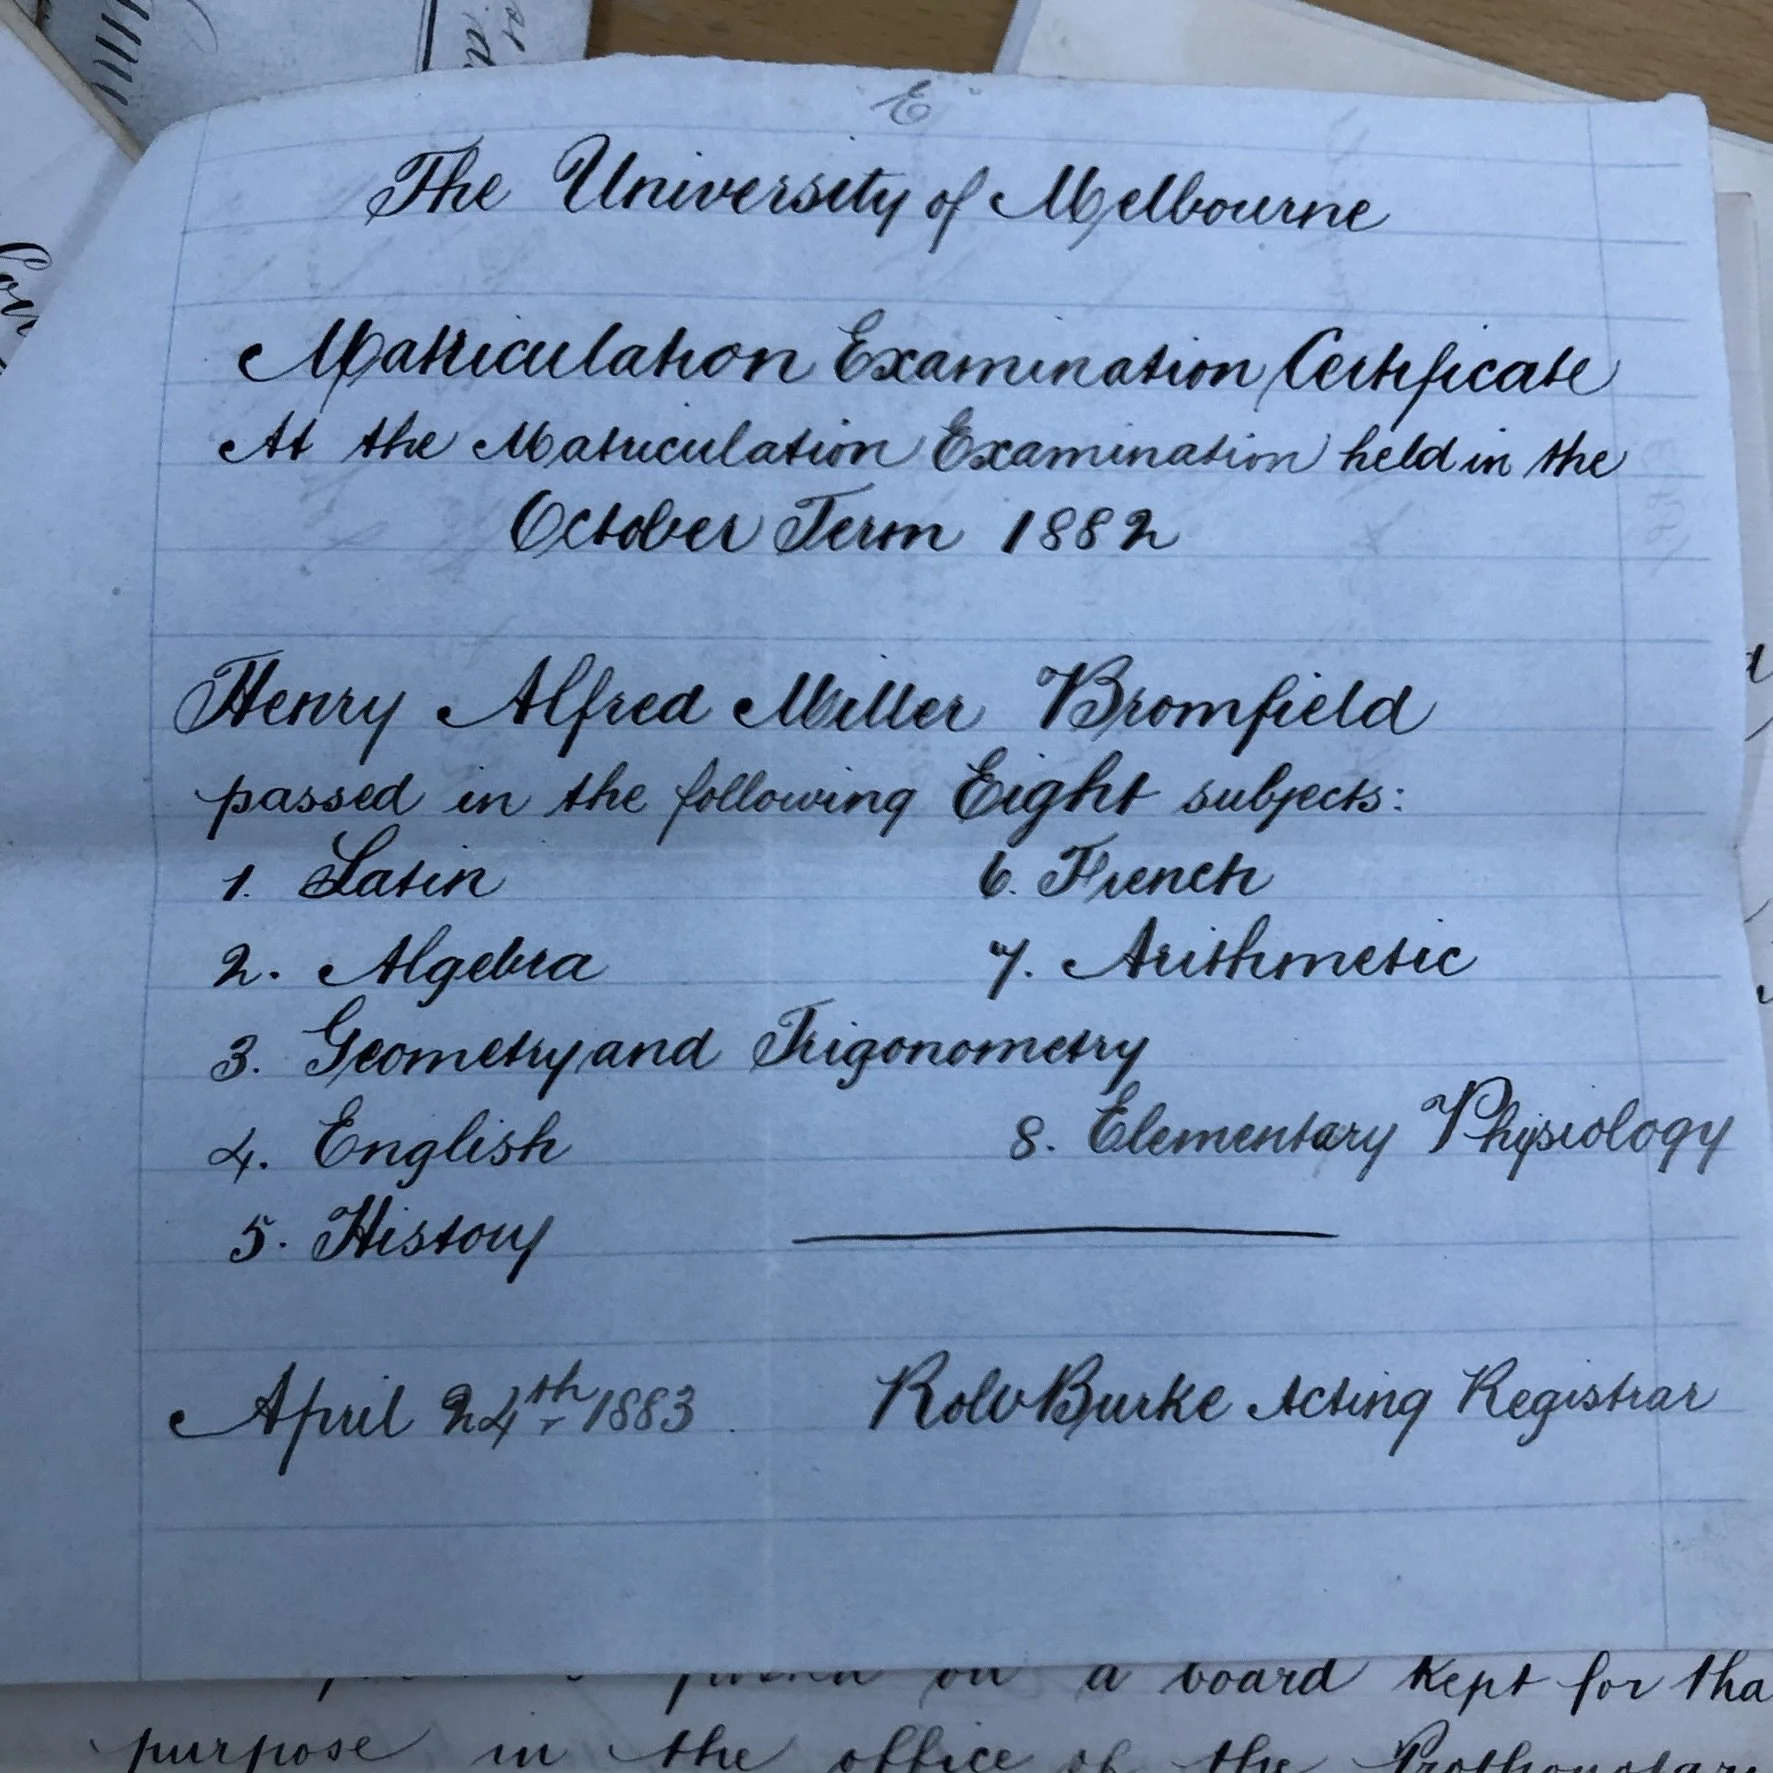 "E"
The University of Melbourne
Matriculation Examination Certificate
At the Matriculation Examination held in the
October Term 1882
Henry Alfred Miller Bromfield
passed in the following Eight subjects:
1. Latin
2. Algebra
3. Geometry and Trigonometry
4. English
5. History
6. French
7. Arithmetic
8. Elementary Physiology
April 24th 1883.
Robt Burke Acting Registrar
on a board kept for tha
purpose in the office of the Prothonotary